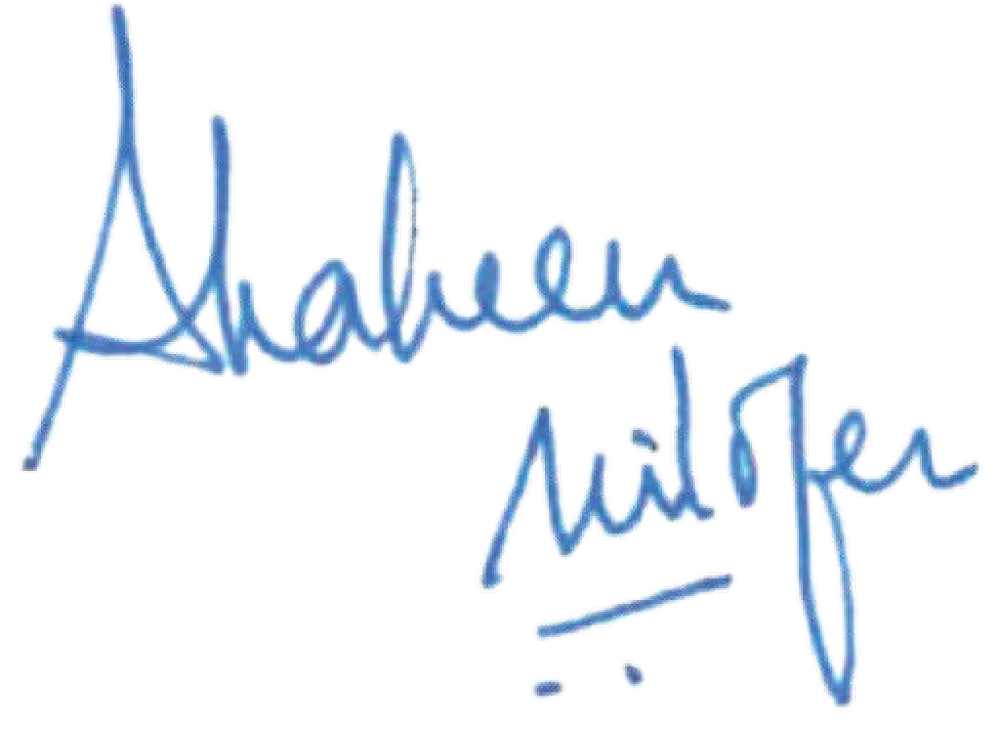 Shaheen
Nilofer